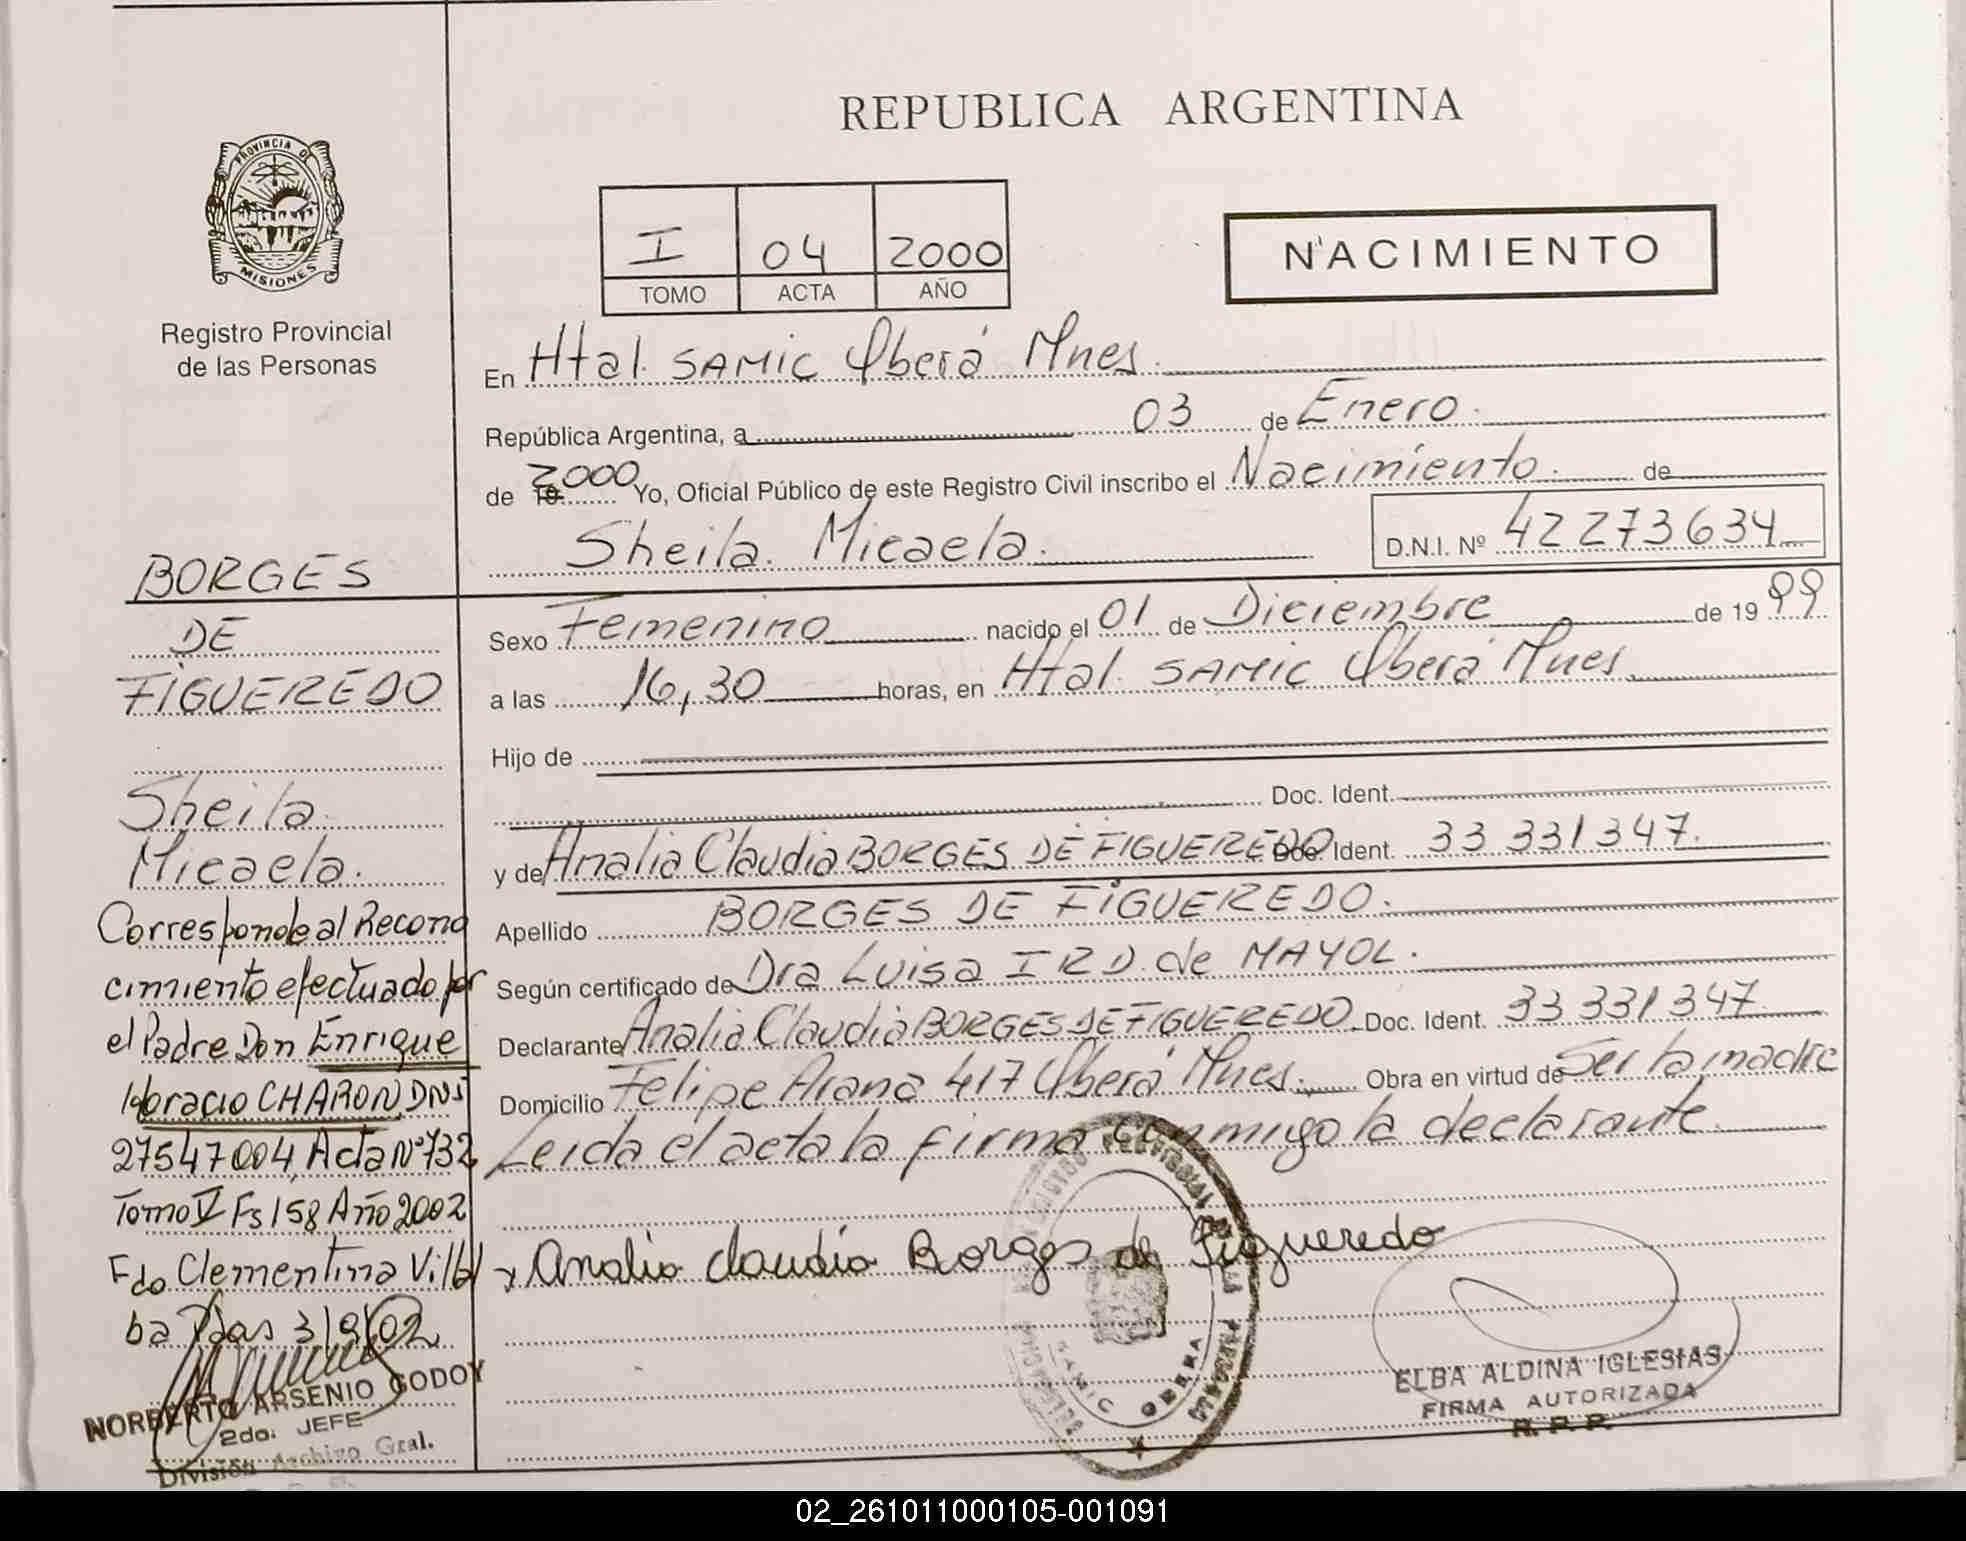 REPUBLICA ARGENTINA
PROVINCIA DE
MISIONES
Registro Provincial
de las Personas
I 04 2000
TOMO ACTA AÑO
NACIMIENTO
En Htal. SAMIC Oberá Mnes.
República Argentina, a 03 de Enero.
de 19 2000 Yo, Oficial Público de este Registro Civil inscribo el Nacimiento. de
Sheila Micaela. D.N.I. Nº 42273634
Sexo Femenino nacido el 01 de Diciembre de 19 99
a las 16,30 horas, en Htal. SAMIC Oberá Mnes
Hijo de
Doc. Ident.
y de Analia Claudia BORGES DE FIGUEREDO Doc. Ident. 33 331 347.
Apellido BORGES DE FIGUEREDO.
Según certificado de Dra Luisa I R D. de MAYOL.
Declarante Analia Claudia BORGES DE FIGUEREDO Doc. Ident. 33 331 347
Domicilio Felipe Arana 417 Oberá Mnes. Obra en virtud de Ser la madre
Leida el acta la firma conmigo la declarante
x Analia claudia Borges de Figueredo
BORGES
DE
FIGUEREDO
Sheila
Micaela.
Corresponde al Recono
cimiento efectuado por
el Padre Don Enrique
Horacio CHARON, DNI
27547004, Acta Nº 732
Tomo V Fs 158 Año 2002
Fdo Clementina Villal
ba Pdas 3/9/02
NORBERTO ARSENIO GODOY
2do. JEFE
División Archivo Gral.
SAMIC OBERA
ELBA ALDINA IGLESIAS
FIRMA AUTORIZADA
R. P. P.
02_261011000105-001091